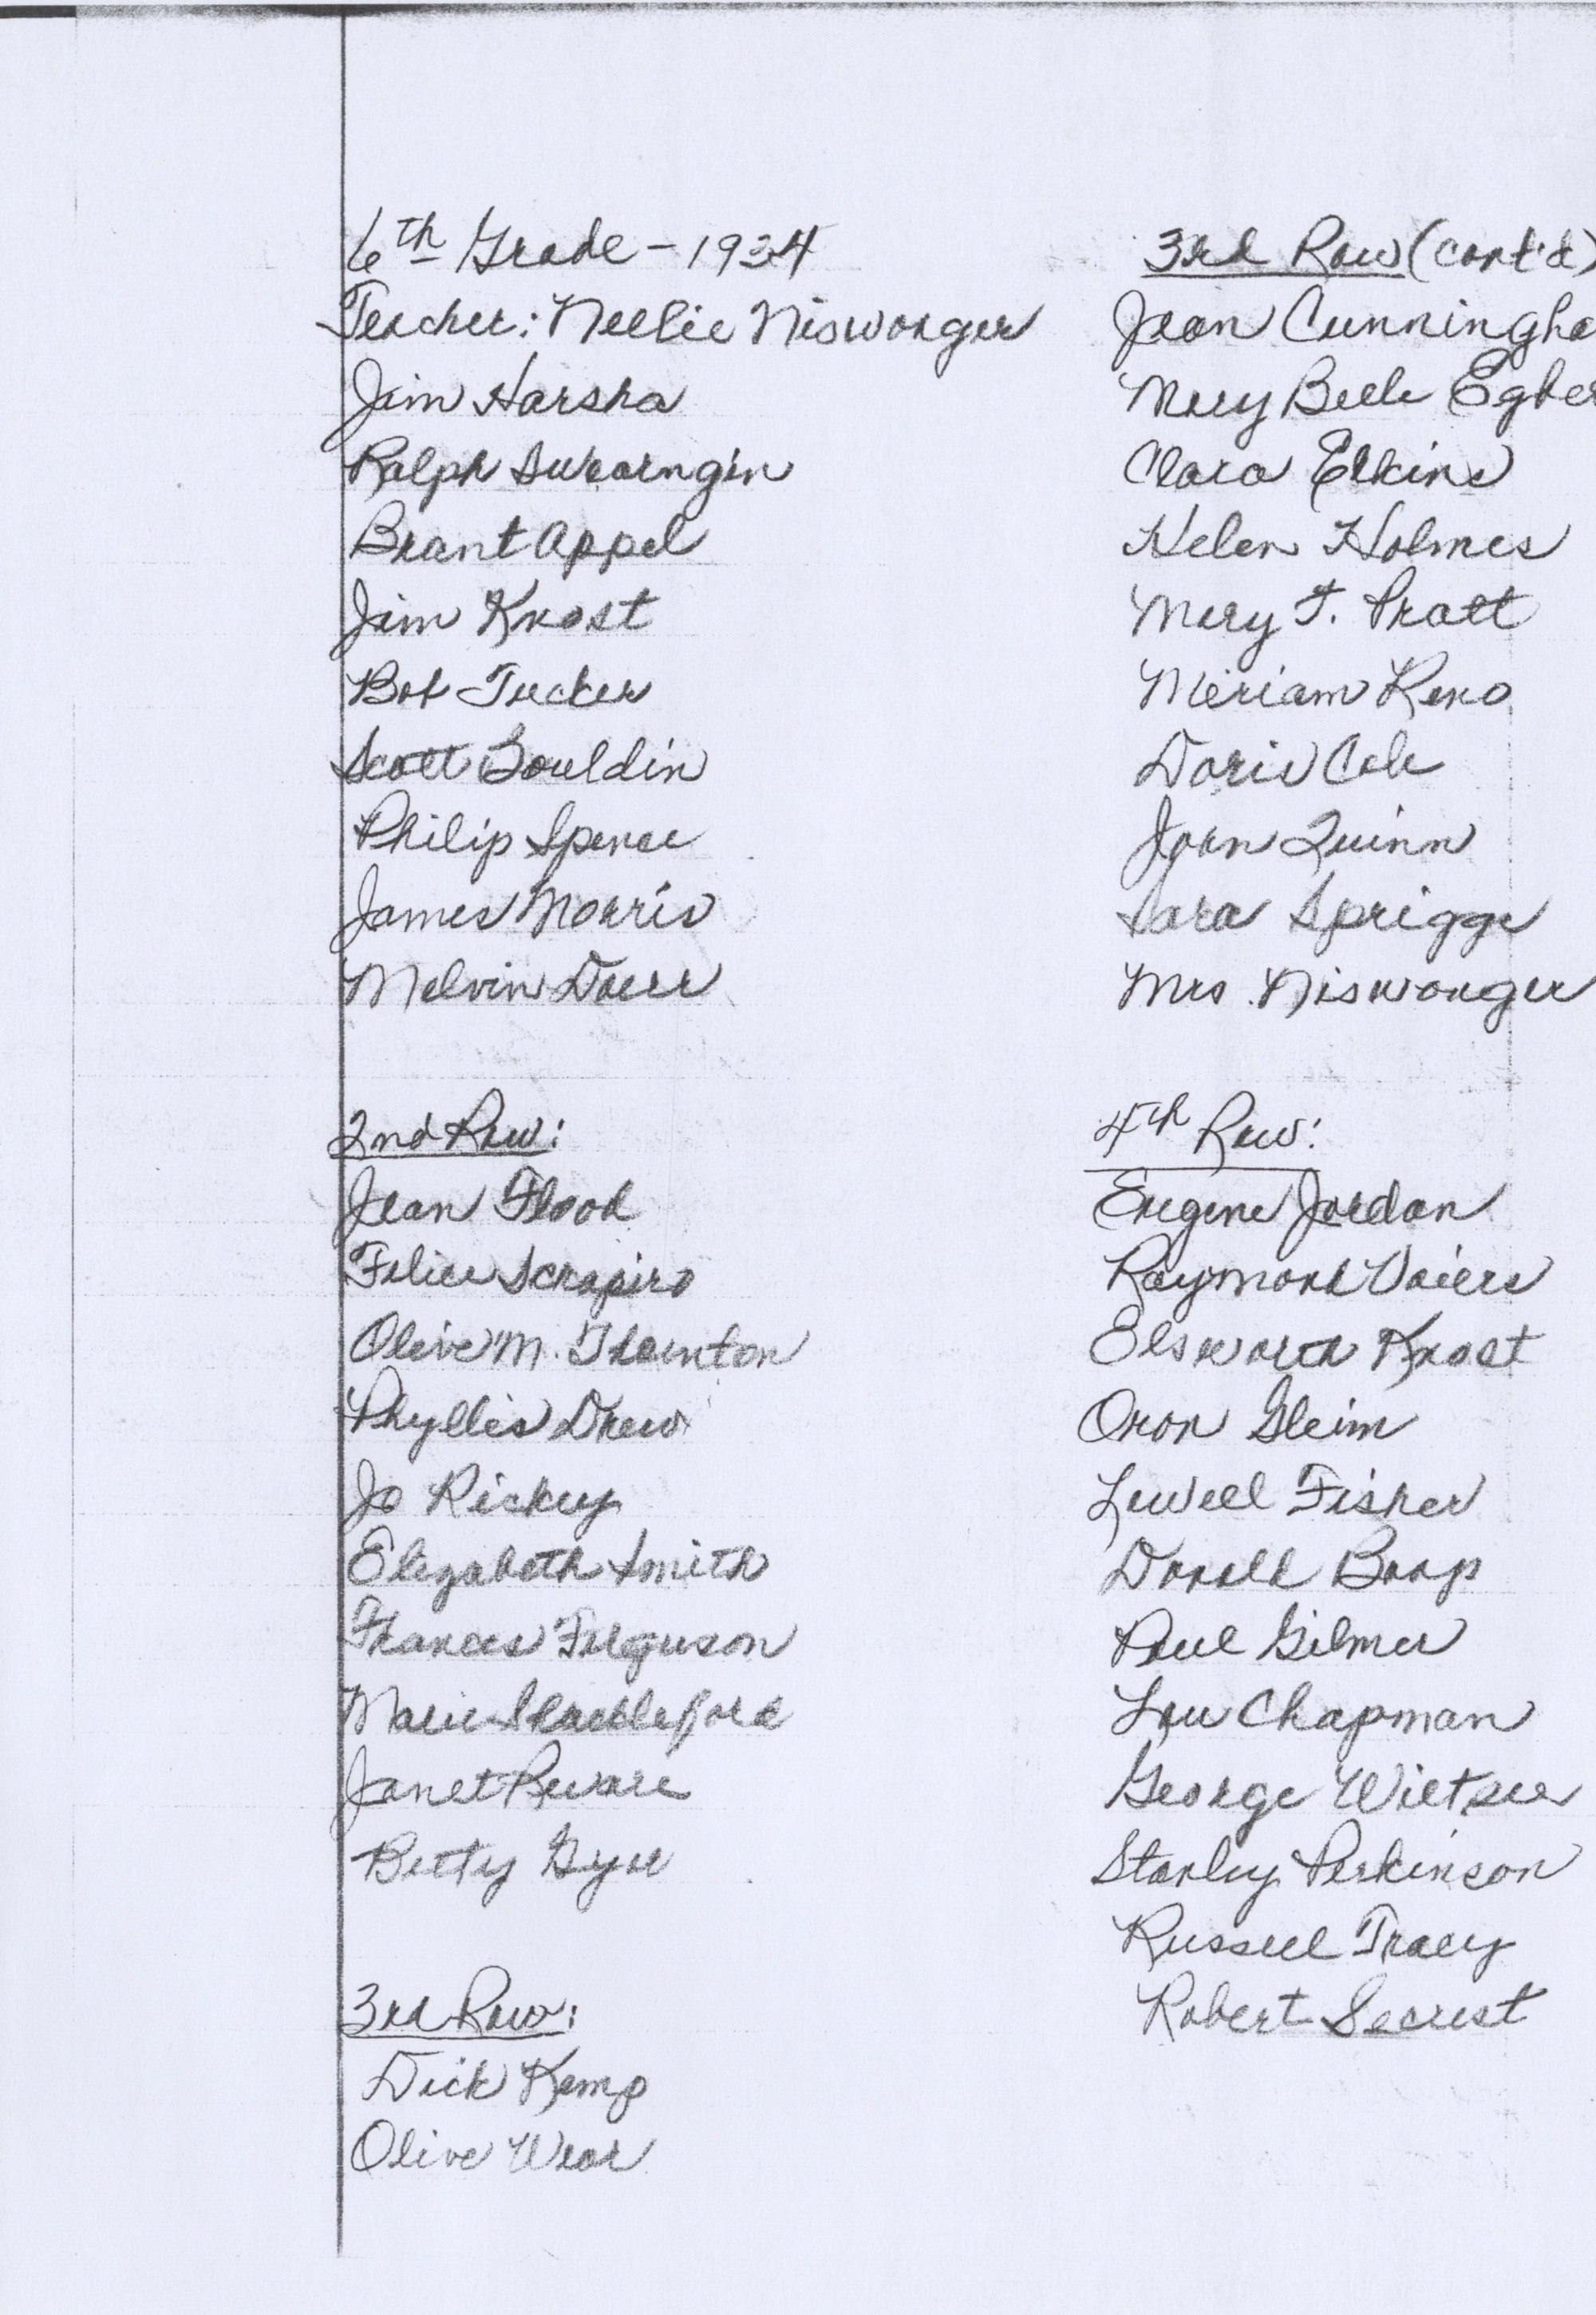 6th Grade - 1934
Teacher: Nellie Niswonger
Jim Harsha
Ralph Swearngin
Brant Appel
Jim Knost
Bob Tucker
Scott Gouldin
Philip Spence
James Morris
Melvin Doerr
2nd Row:
Jean Flood
Felice Schapiro
Olive M. Thornton
Phyllis Drew
Jo Rickey
Elizabeth Smith
Frances Ferguson
Marie Shackleford
Janet
Betty
3rd Row:
Dick Kemp
Olive Wear
3rd Row (cont'd)
Jean Cunningha
Mary Belle Egber
Clara Elkins
Helen Holmes
Mary F. Pratt
Miriam Reno
Doris Cole
Joan Quinn
Sara Spriggs
Mrs. Niswonger
4th Row:
Eugene Jordan
Raymond Voiers
Elsworth Knost
Oron Gleim
Lowell Fisher
Donald Boop
Paul Gilmer
Lou Chapman
George Wiltsee
Stanley Perkinson
Russell Tracy
Robert Secrest